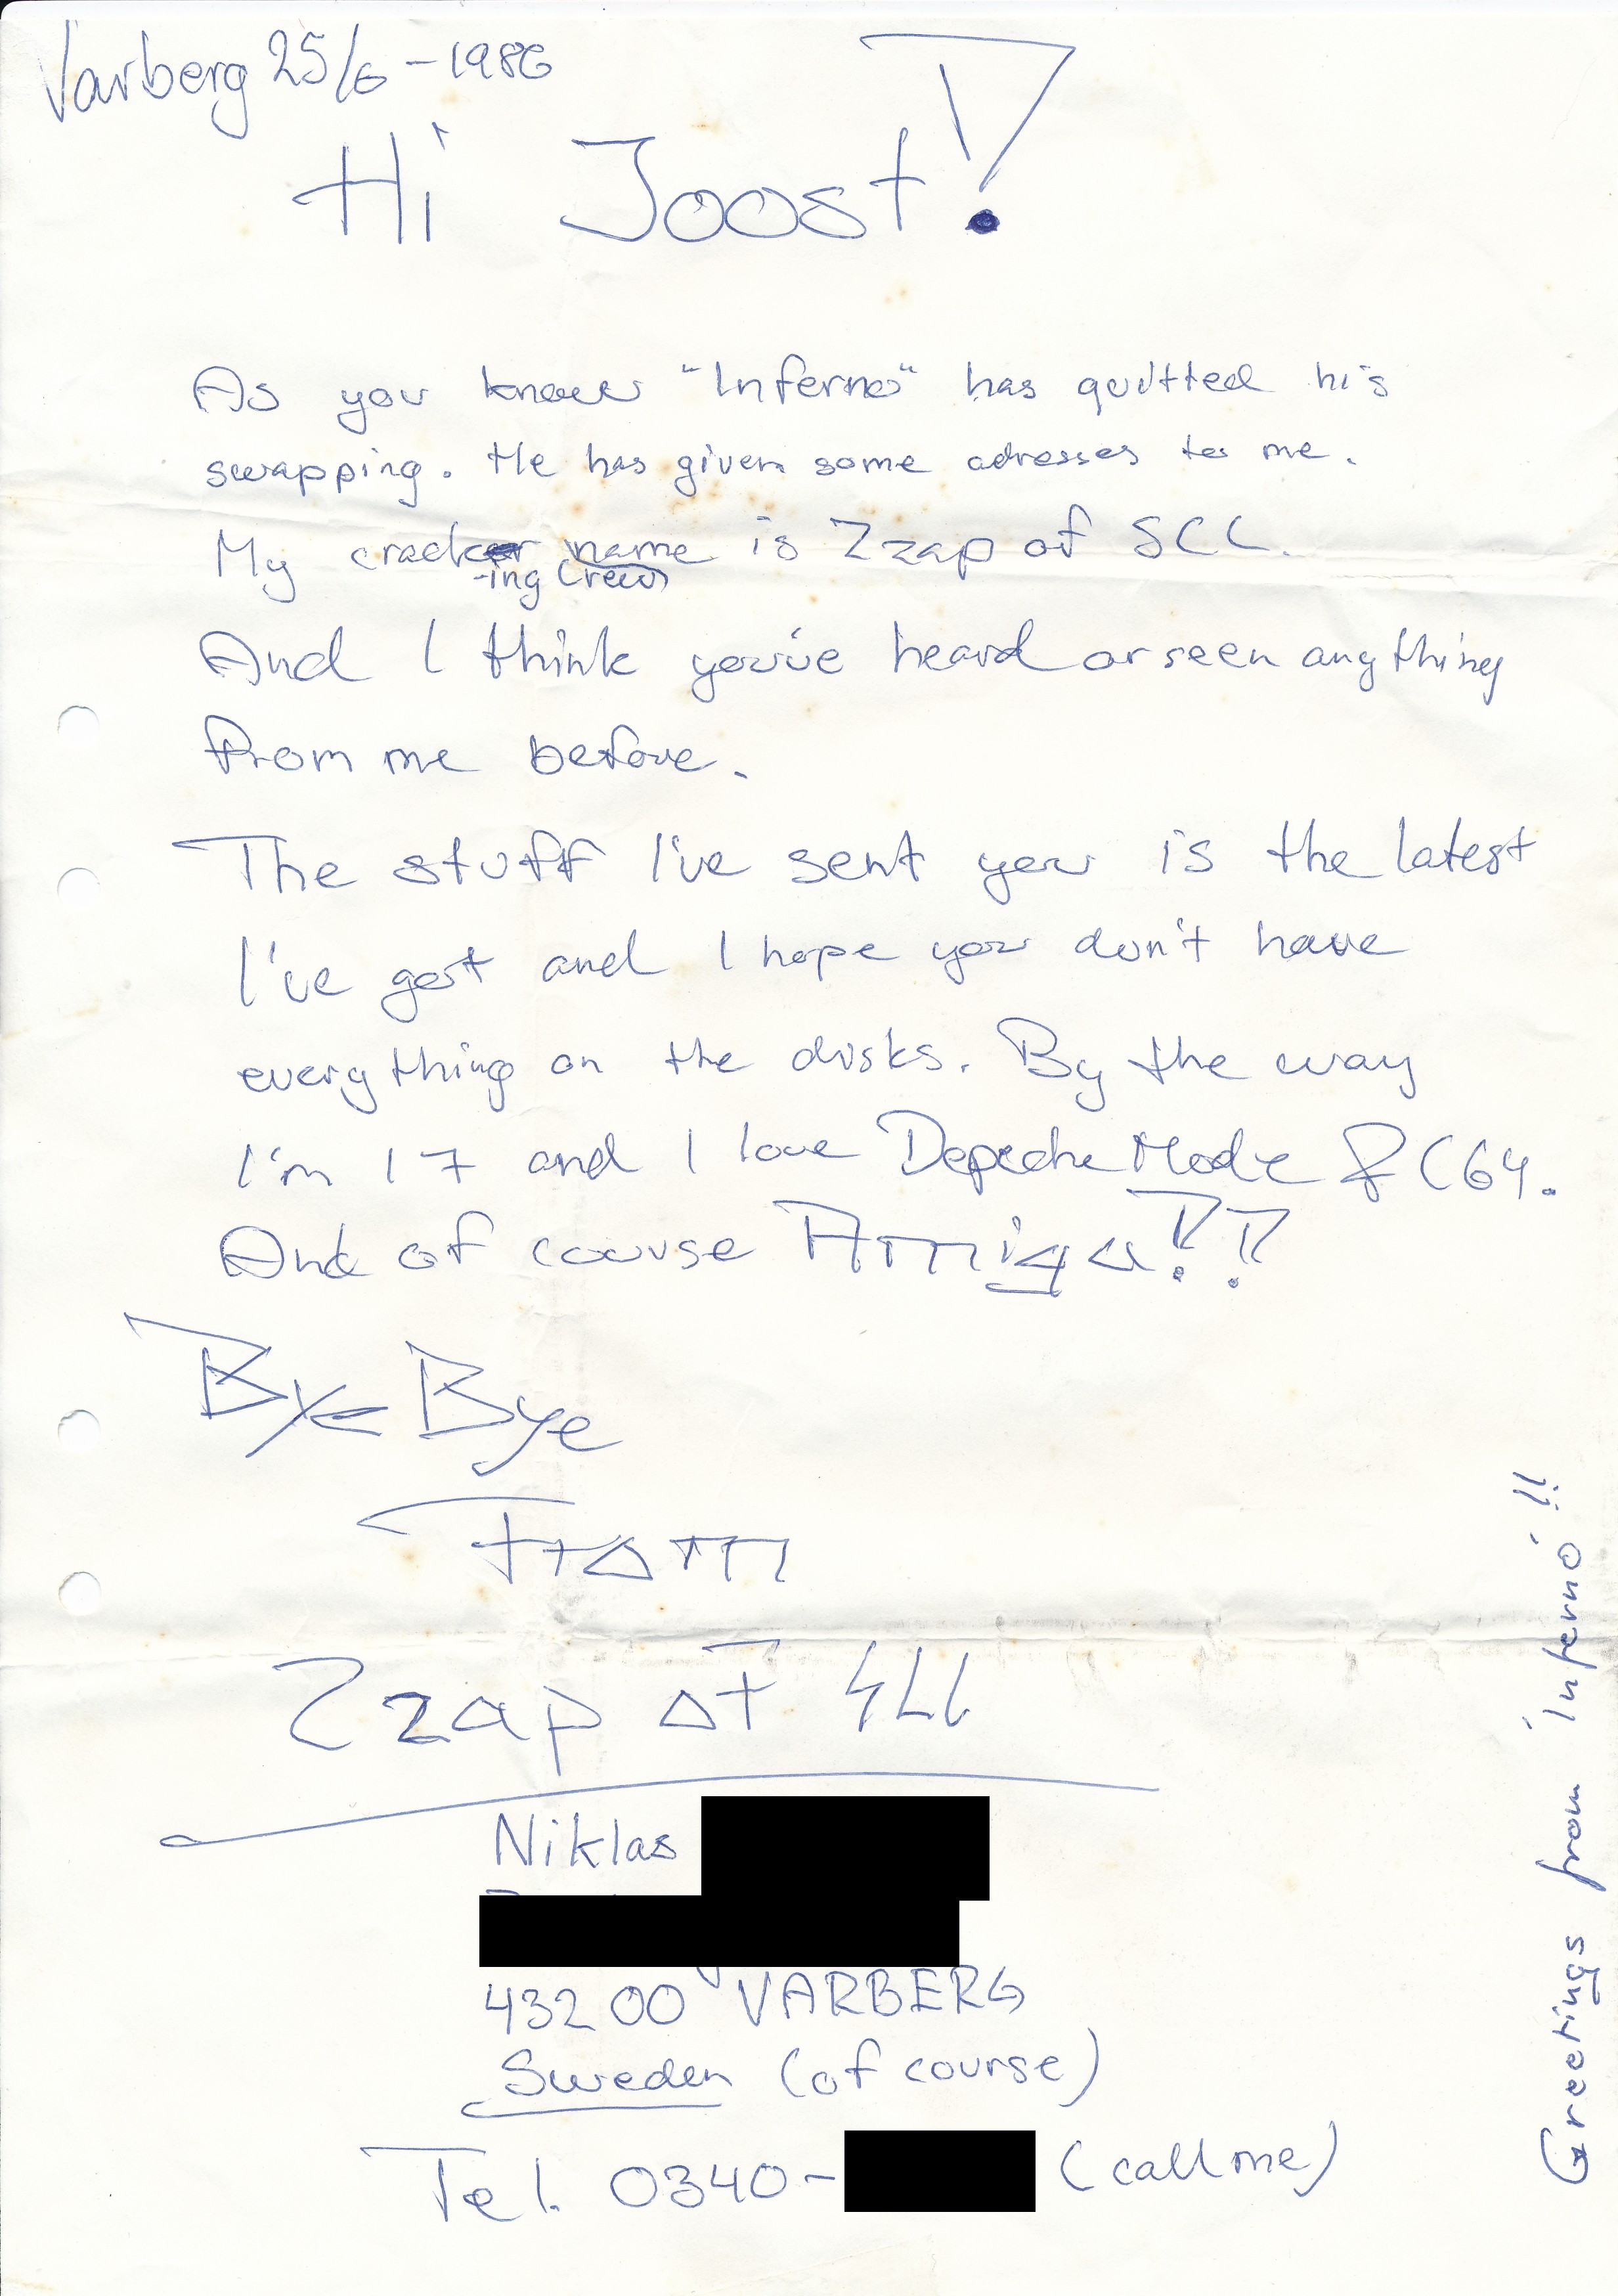 Varberg 25/6 - 1986
Hi Joost!
As you know "Inferno" has quitted his
swapping. He has given some adresses to me.
My cracker name is Zzap of SCC.
-ing Crew
And I think you've heard or seen anything
from me before.
The stuff I've sent you is the latest
I've got and I hope you don't have
everything on the disks. By the way
I'm 17 and I love Depeche Mode & C64.
And of course Amiga!!
Bye Bye
From
Zzap of SCC
Niklas
432 00 VARBERG
Sweden (of course)
Tel. 0340- (call me)
Greetings from 'inferno' !!